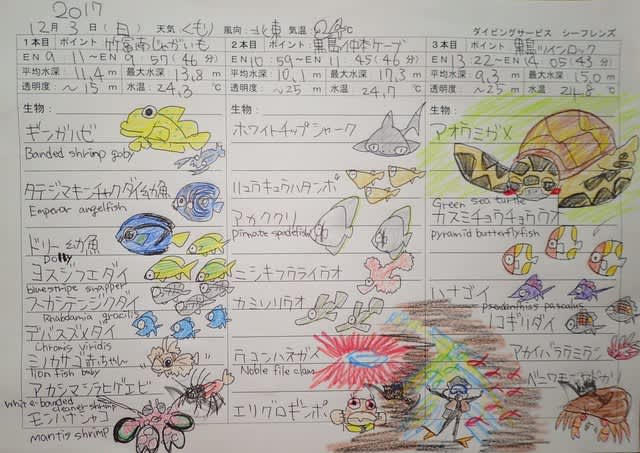 2017
12月3日(日) 天気 くもり 風向: 北東 気温: 24℃ ダイビングサービス シーフレンズ
1本目 ポイント 竹富南じゃがいも
EN 9:11~EN 9:57(46分)
平均水深 11.4m 最大水深 13.8m
透明度: ~15m 水温: 24.3℃
生物:
ギンガハゼ
Banded shrimp goby
タテジマキンチャクダイ幼魚
Emperor angelfish
ドリー幼魚
Dolly
ヨスジフエダイ
bluestripe snapper
スカシテンジクダイ
Rhabdamia gracilis
デバスズメダイ
Chromis viridis
ミノカサゴ赤ちゃん
lion fish baby
アカシマシラヒゲエビ
white-banded
cleaner shrimp
モンハナシャコ
mantis shrimp
2本目 ポイント: 黒島仲本ケーブ
EN 10:59~EN 11:45(46分)
平均水深 10.1m 最大水深 17.3m
透明度: ~25m 水温: 24.7℃
生物:
ホワイトチップシャーク
リュウキュウハタンポ
アカククリ
pinnate spadefish
ニシキフウライウオ
カミソリウオ
ウコンハネガイ
Noble file clam
エリグロギンポ
3本目 ポイント: 黒島ツインロック
EN 13:22~EN 14:05(43分)
平均水深 9.3m 最大水深 15.0m
透明度: ~25m 水温: 24.8℃
生物:
アオウミガメ
Green sea turtle
カスミチョウチョウウオ
pyramid butterflyfish
ハナゴイ
pseudanthias pascalus
ノコギリダイ